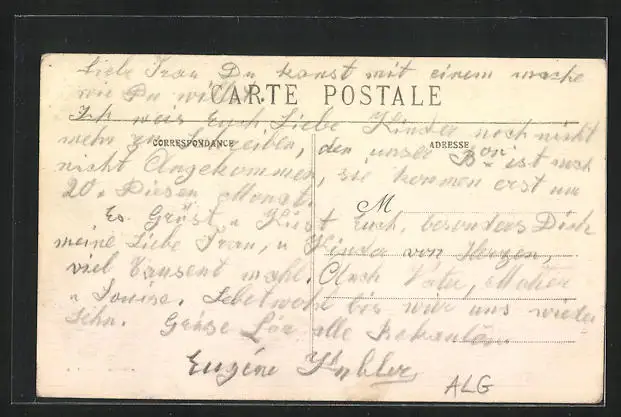 Liebe Frau, Du kanst mit einem mache
wie Du willst.
CARTE POSTALE
Ich weis Euch, Liebe Kinder noch nicht
CORRESPONDANCE
ADRESSE
mehr zu schreiben, den unser Bon ist noch
nicht Angekommen, sie kommen erst um
20. Diesen Monat.
M
Es Grüst u Küst Euch, besonders Dich
meine Liebe Frau, u Kinder von Herzen,
viel Tausent mahl. Auch Vater, Mutter
u Louise. Lebet wohl bis wir uns wieder
sehn. Grüse für alle Bekanten.
Eugéne
ALG